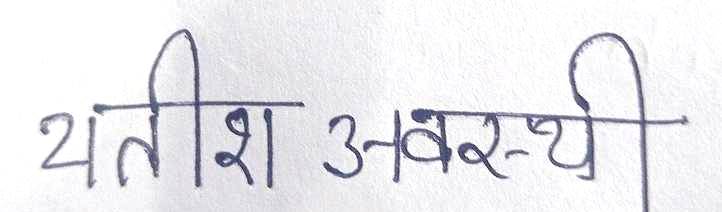 यतीश अवस्थी